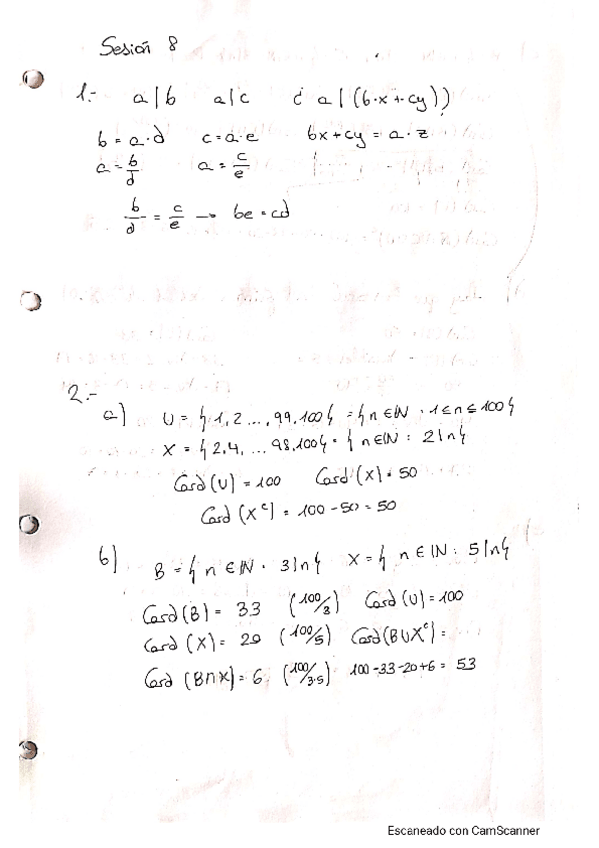 Sesión 8
1.- a|b a|c ¿ a|(b·x+cy))
b = a·d c = a·e bx+cy = a·z
a = b/d a = c/e
b/d = c/e → be = cd
2.-
a) U = {1,2 ..., 99,100} = {n ∈ IN : 1≤n≤100}
X = {2,4, ... 98,100} = {n ∈ IN : 2|n}
Card (U) = 100 Card (X) = 50
Card (X^c) = 100-50 = 50
b) B = {n ∈ IN : 3|n} X = {n ∈ IN : 5|n}
Card (B) = 33 (100/3) Card (U) = 100
Card (X) = 20 (100/5) Card (B∪X^c) =
Card (B∩X) = 6 (100/3·5) 100-33-20+6 = 53
Escaneado con CamScanner